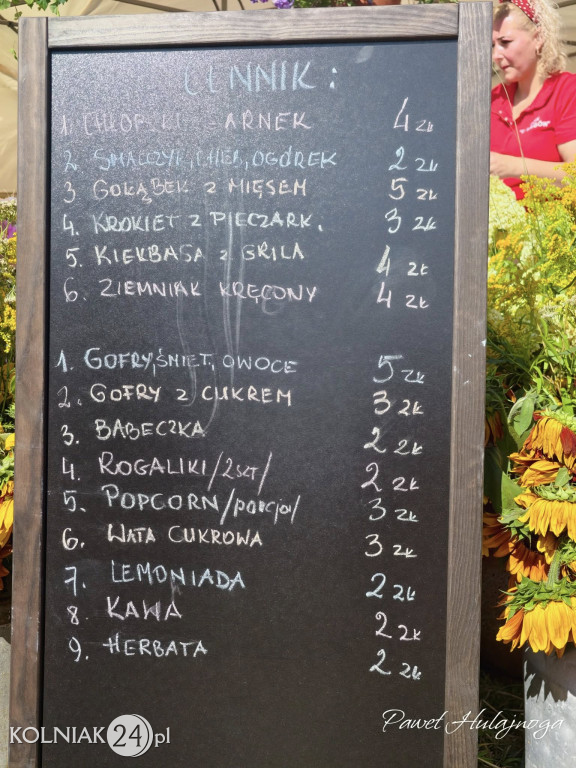 CENNIK :
1. 4 zł
2. SMALCZYK, CHLEB, OGÓREK 2 zł
3 GOŁĄBEK z MIĘSEM 5 zł
4. KROKIET z PIECZARK. 3 zł
5. KIEŁBASA z GRILA 4 zł
6. ZIEMNIAK KRĘCONY 4 zł
1. GOFRY, ŚMIET, OWOCE 5 zł
2. GOFRY z CUKREM 3 zł
3. BABECZKA 2 zł
4. ROGALIKI /2szt/ 2 zł
5. POPCORN /porcja/ 3 zł
6. WATA CUKROWA 3 zł
7. LEMONIADA 2 zł
8. KAWA 2 zł
9. HERBATA 2 zł
KOLNIAK24.pl
Paweł Hulajnoga